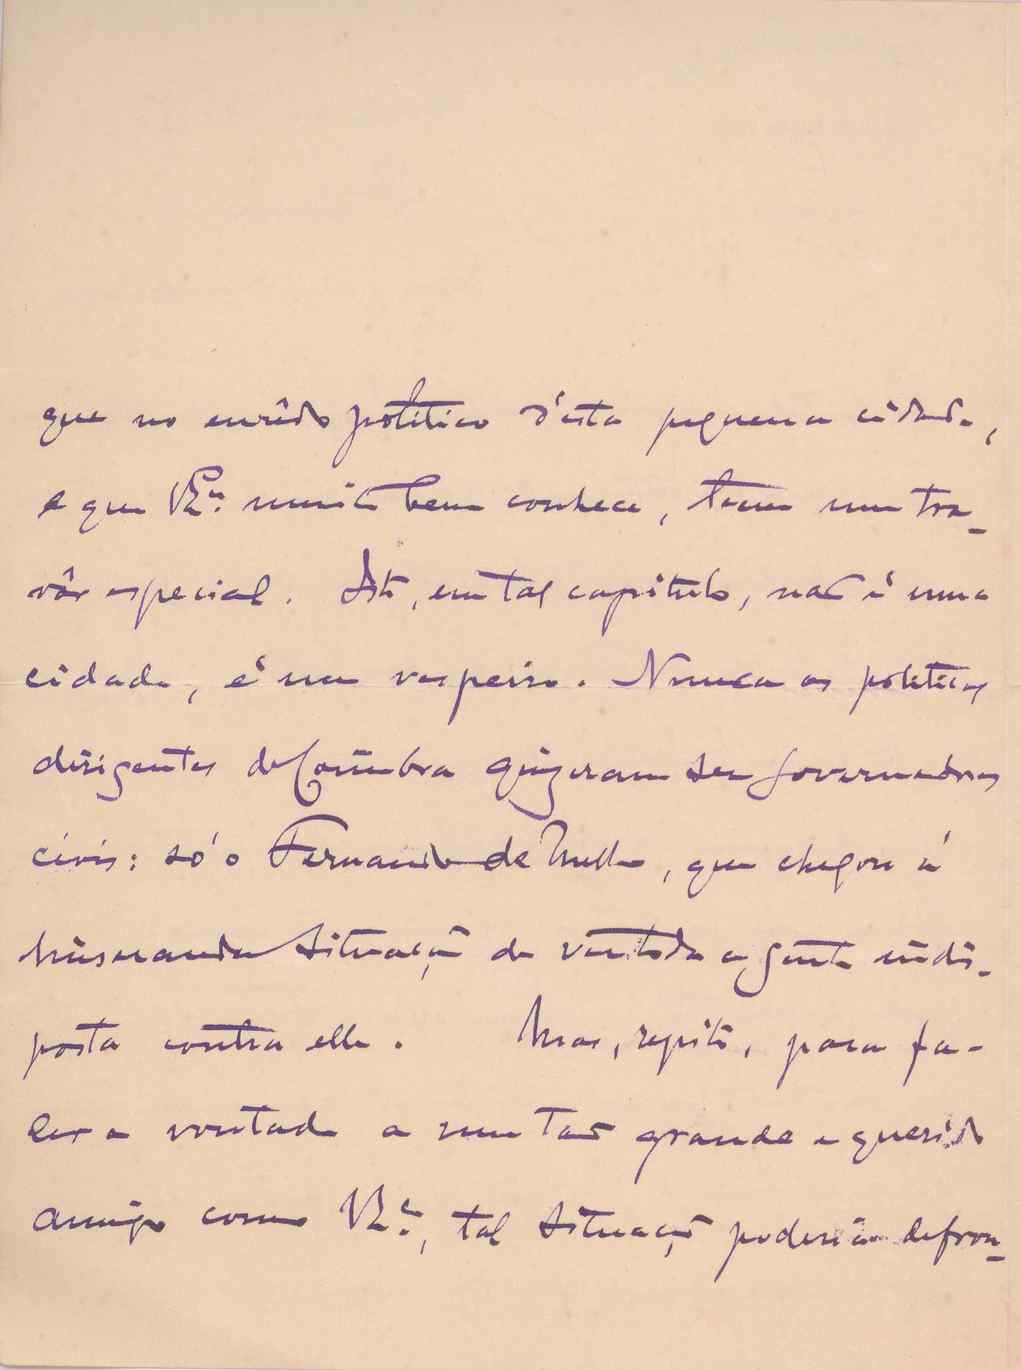 que no enrêdo politico d'esta pequena cidade,
e que V. Ex.ª muito bem conhece, teem um tra-
vôr especial. Isto, em tal capitulo, não é uma
cidade, é um vespeiro. Nunca os politicos
dirigentes de Coimbra quizeram ser governadores
civis: só o Fernando de Mello, que chegou á
miseranda situação de ver toda a gente indis-
posta contra elle. Mas, repito, para fa-
zer a vontade a um tão grande e querido
amigo como V. Ex.ª, tal situação poderia defron-